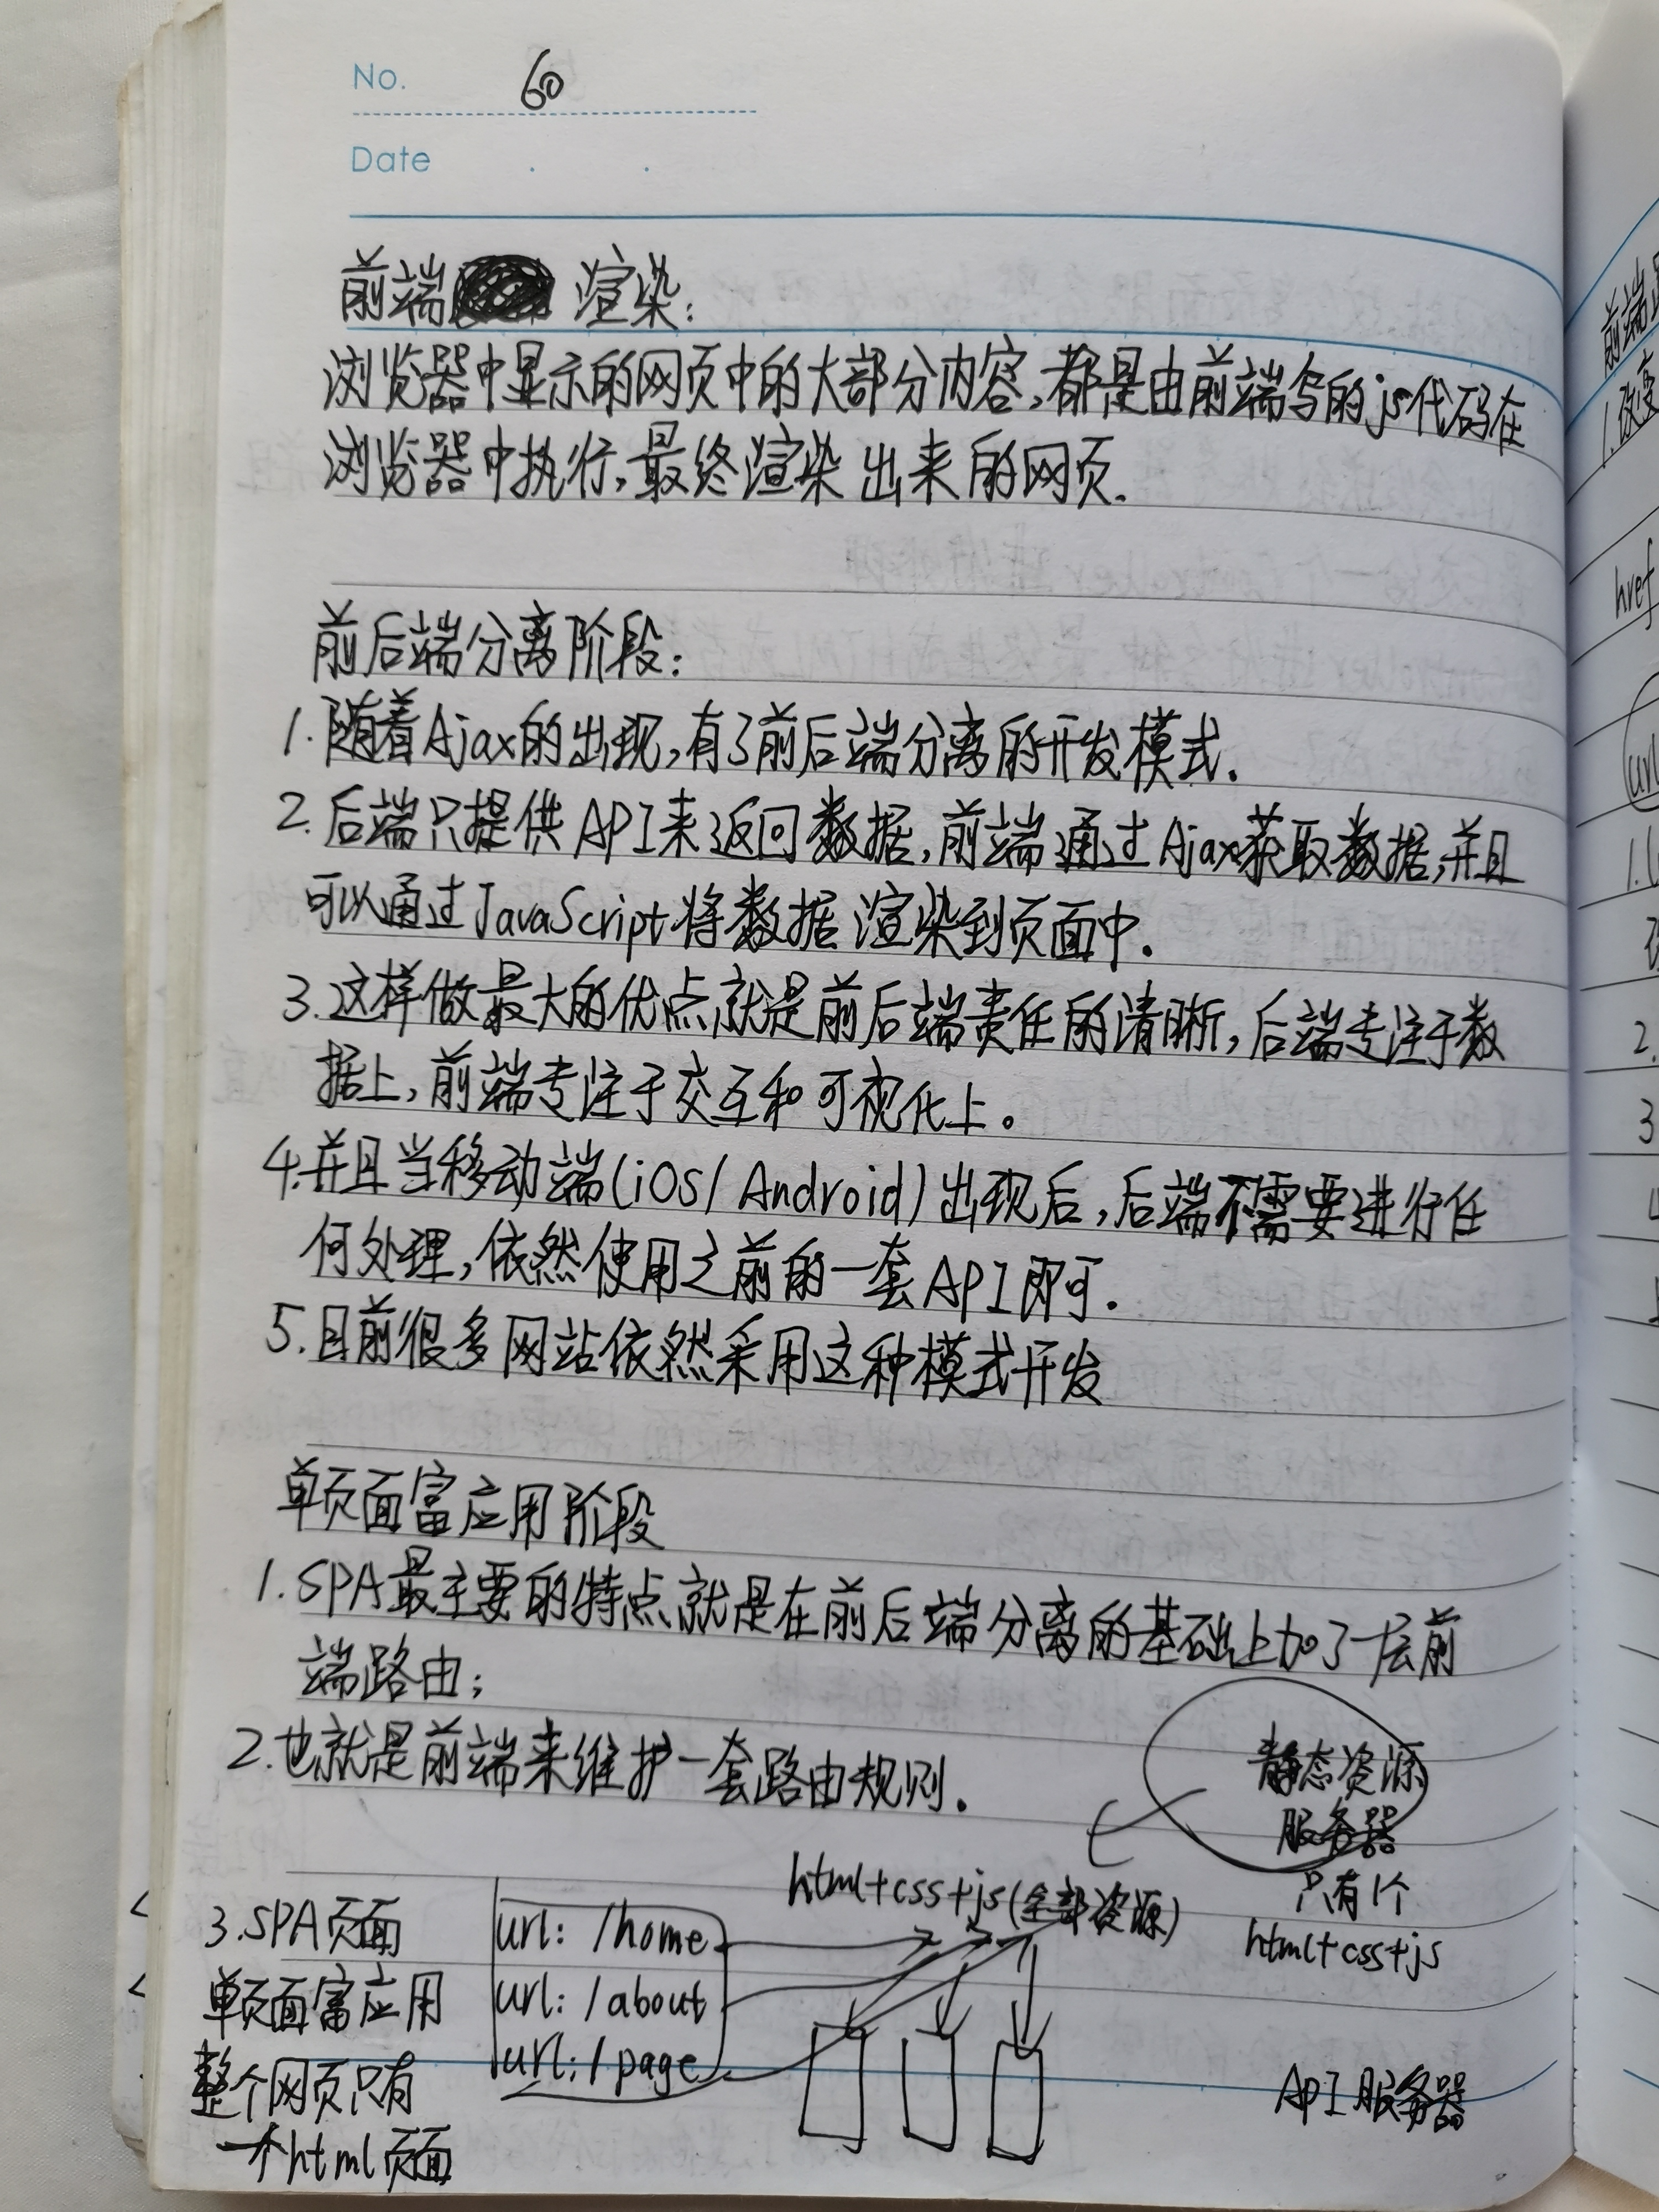 No. 60
Date
前端 渲染:
浏览器中显示的网页中的大部分内容,都是由前端写的js代码在
浏览器中执行,最终渲染出来的网页.
前后端分离阶段:
1.随着Ajax的出现,有了前后端分离的开发模式.
2.后端只提供API来返回数据,前端通过Ajax获取数据,并且
可以通过JavaScript将数据渲染到页面中.
3.这样做最大的优点就是前后端责任的清晰,后端专注于数
据上,前端专注于交互和可视化上。
4.并且当移动端(iOS/Android)出现后,后端不需要进行任
何处理,依然使用之前的一套API即可.
5.目前很多网站依然采用这种模式开发
单页面富应用阶段
1.SPA最主要的特点就是在前后端分离的基础上加了一层前
端路由;
2.也就是前端来维护一套路由规则.
静态资源
服务器
只有1个
html+css+js
html+css+js(全部资源)
3.SPA页面
单页面富应用
整个网页只有
一个html页面
url: /home
url: /about
url: /page
API服务器
前端
1.改变
href
url
1.
2.
3